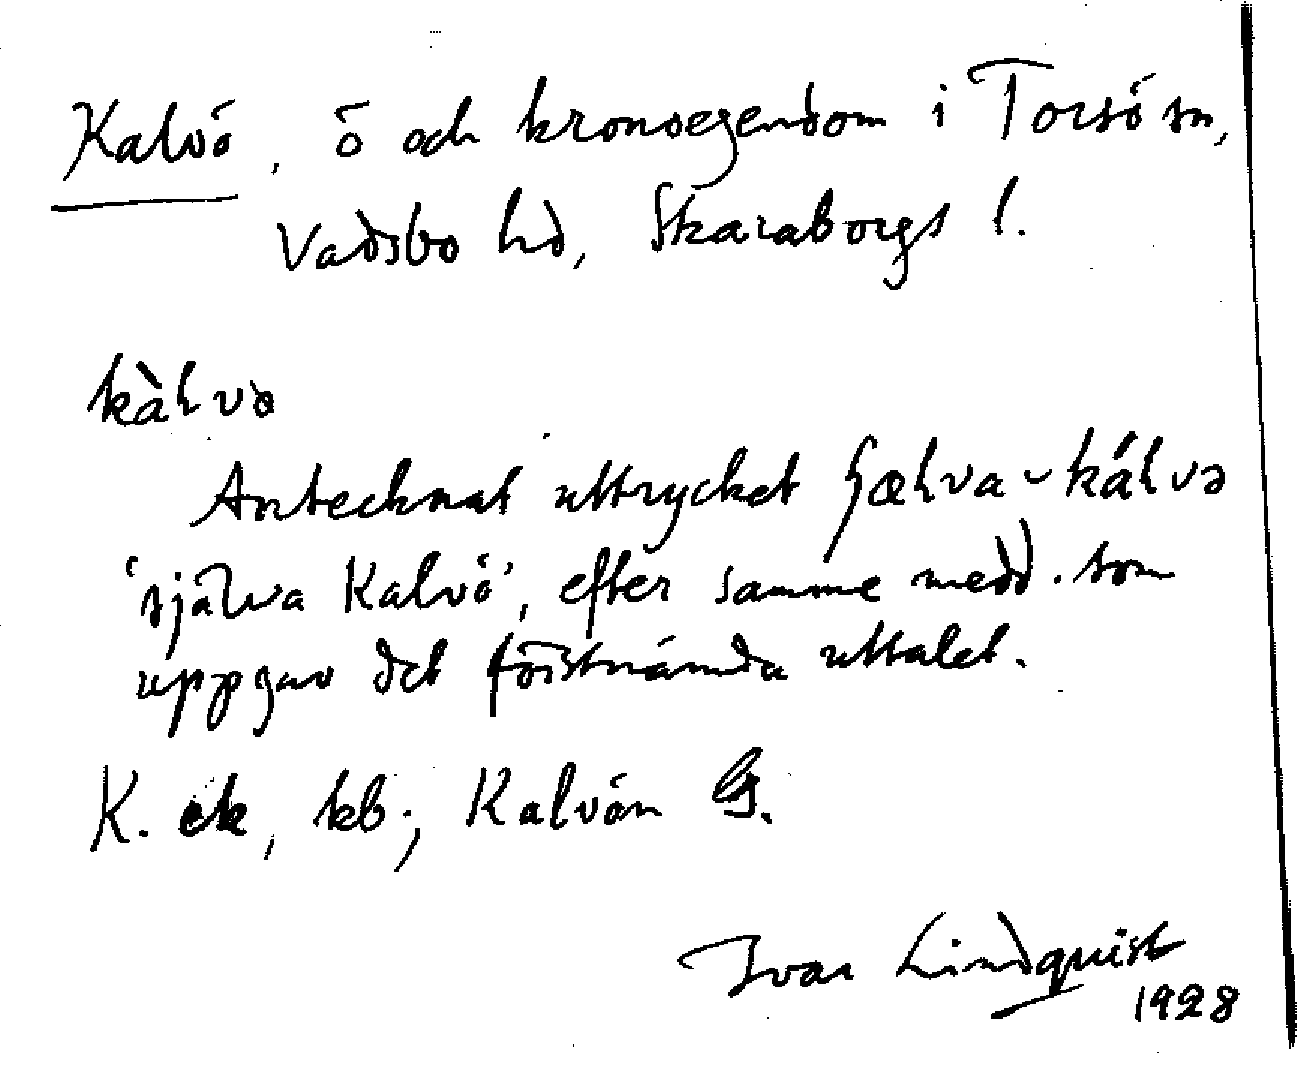 Kalvö, ö och kronoegendom i Torsö sn,
Vadsbo hd, Skaraborgs l.
kàlvə
Antecknat uttrycket ʃælva-kálvə
'själva Kalvö', efter samme medd. som
uppgav det förstnämnda uttalet.
K. ek, kb; Kalvön G.
Ivar Lindquist
1928